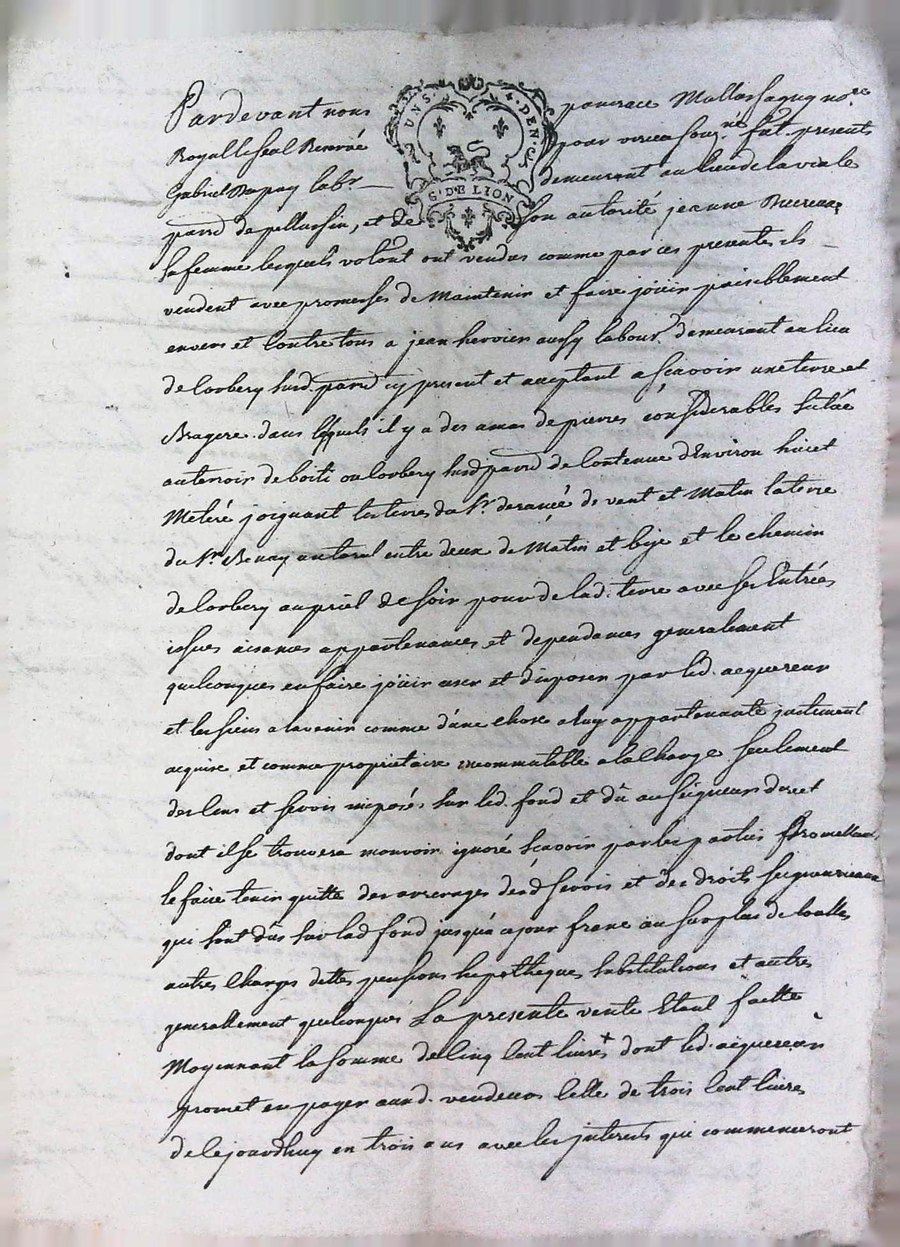 Pardevant nous pancrace Mallassagny no.re
UNS. 4. DEN. G.
Royal le seal Renové pour verca sou.né fut presents
Gabriel Dupuy lab.r demeurant au lieu de la viale
S. DE LION
parr.d de pellussin, et de son autorité jeanne
sa femme lesquels volont ont vendus comme par ces presentes ils
vendent avec promesses de Maintenir et faire joüir paisiblement
envers et Contre tous a jean hervier aussy labour. demeurant au lieu
de Corbery susd. parrd cy present et acceptant a scavoir une terre et
Bragere dans lesquels il y a des amas de pierres considerables situëe
au terroir de boiti ou Corbery susd parrd de Contenue d'Environ huict
Meteré joignant les terres du Sr. de vent et Matin la terre
du Sr. un teral entre deux de Matin et bize et le chemin
de Corbery au priel de soir pour de lad. terre avec ses Entrées
issues aisances appartenances et dependances generalement
quelconques en faire joüir user et disposer par led. acquereur
et les siens a lavenir comme d'une chose a luy appartenante justement
acquise et comme proprietaire incommutable a la Charge seulement
des Cens et servis imposés sur led. fond et dû au seigneur direct
dont il se trouvera mouvoir ignoré scavoir par les parties promettant
le faire tenir quitte des arrerages desd servis et des droits seigneuriaux
qui sont dûs sur lad fond jusqu'a ce jour franc au surplus de touttes
autres Charges dettes pensions hepotheques substitutions et autres
generallement quelconques La presente vente Etant faitte
Moyennant la somme de Cinq Cent livres + dont led. aiquereur
promet en payer auxd. vendeurs Celle de trois Cent livre
de Cejourdhuy en trois ans avec les interests qui commenceront